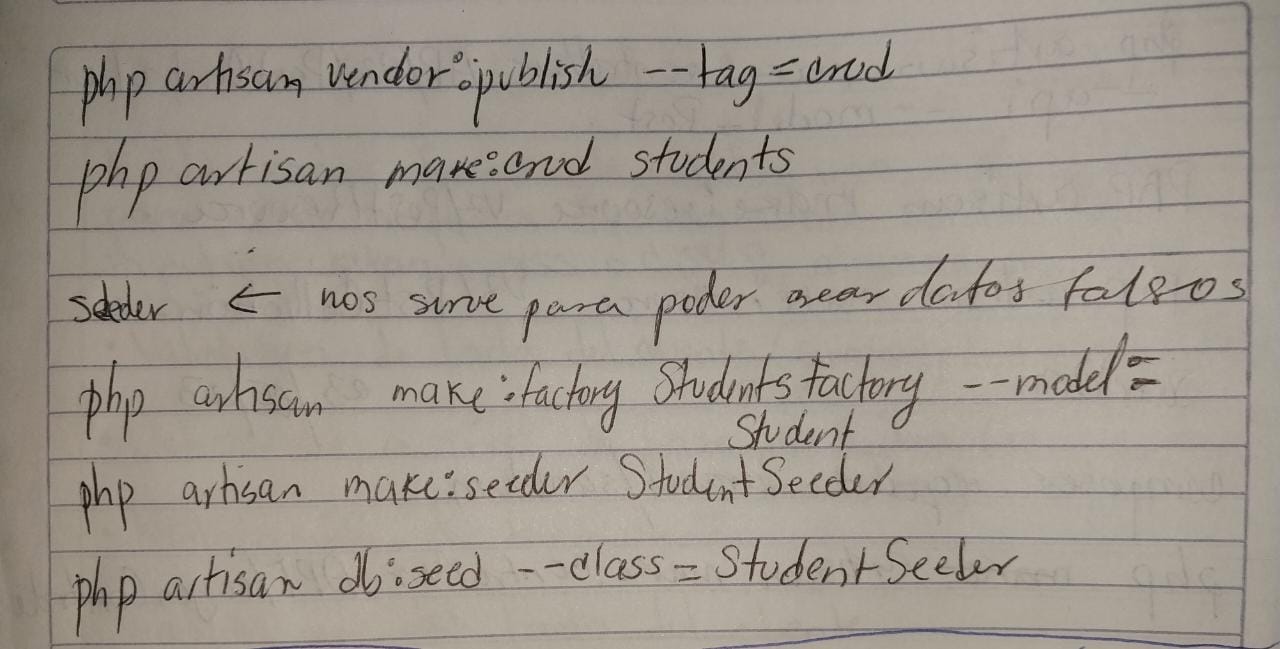 php artisan vendor:publish --tag=crud
php artisan make:crud students
seeder ← nos sirve para poder crear datos falsos
php artisan make:factory Students factory --model=
Student
php artisan make:seeder Student Seeder
php artisan db:seed --class=Student Seeder